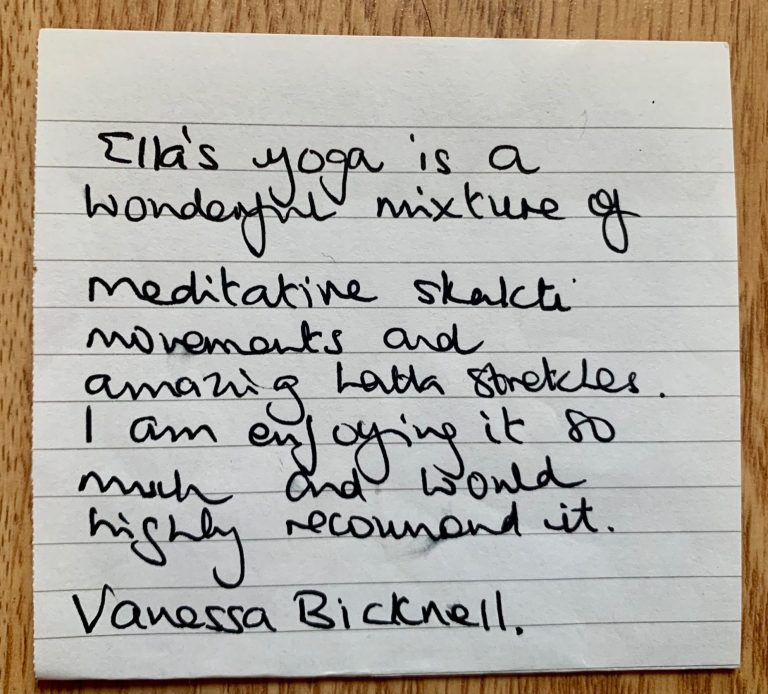 Ella's yoga is a
wonderful mixture of
meditative shakti
movements and
amazing hatha stretches.
I am enjoying it so
much and would
highly recommend it.
Vanessa Bicknell.